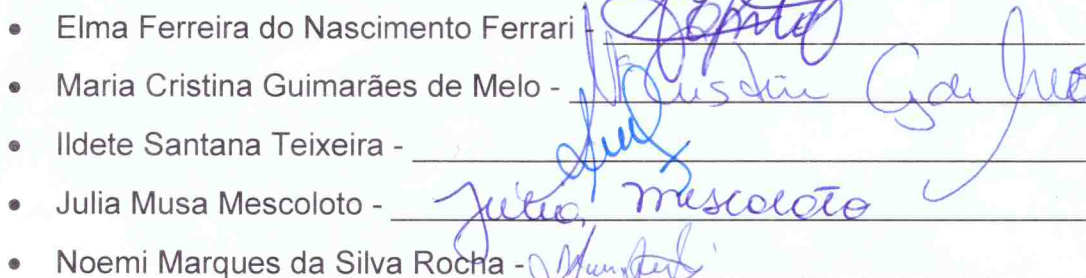 • Elma Ferreira do Nascimento Ferrari -
• Maria Cristina Guimarães de Melo - Mª Cristina G de Melo
• Ildete Santana Teixeira -
• Julia Musa Mescoloto - Julia Mescoloto
• Noemi Marques da Silva Rocha -